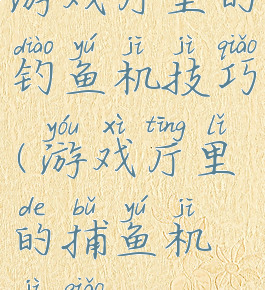 游戏厅里的
diào yú jī jì qiǎo
钓鱼机技巧
yóu xì tīng lǐ
(游戏厅里
de bǔ yú jī
的捕鱼机
jì qiǎo